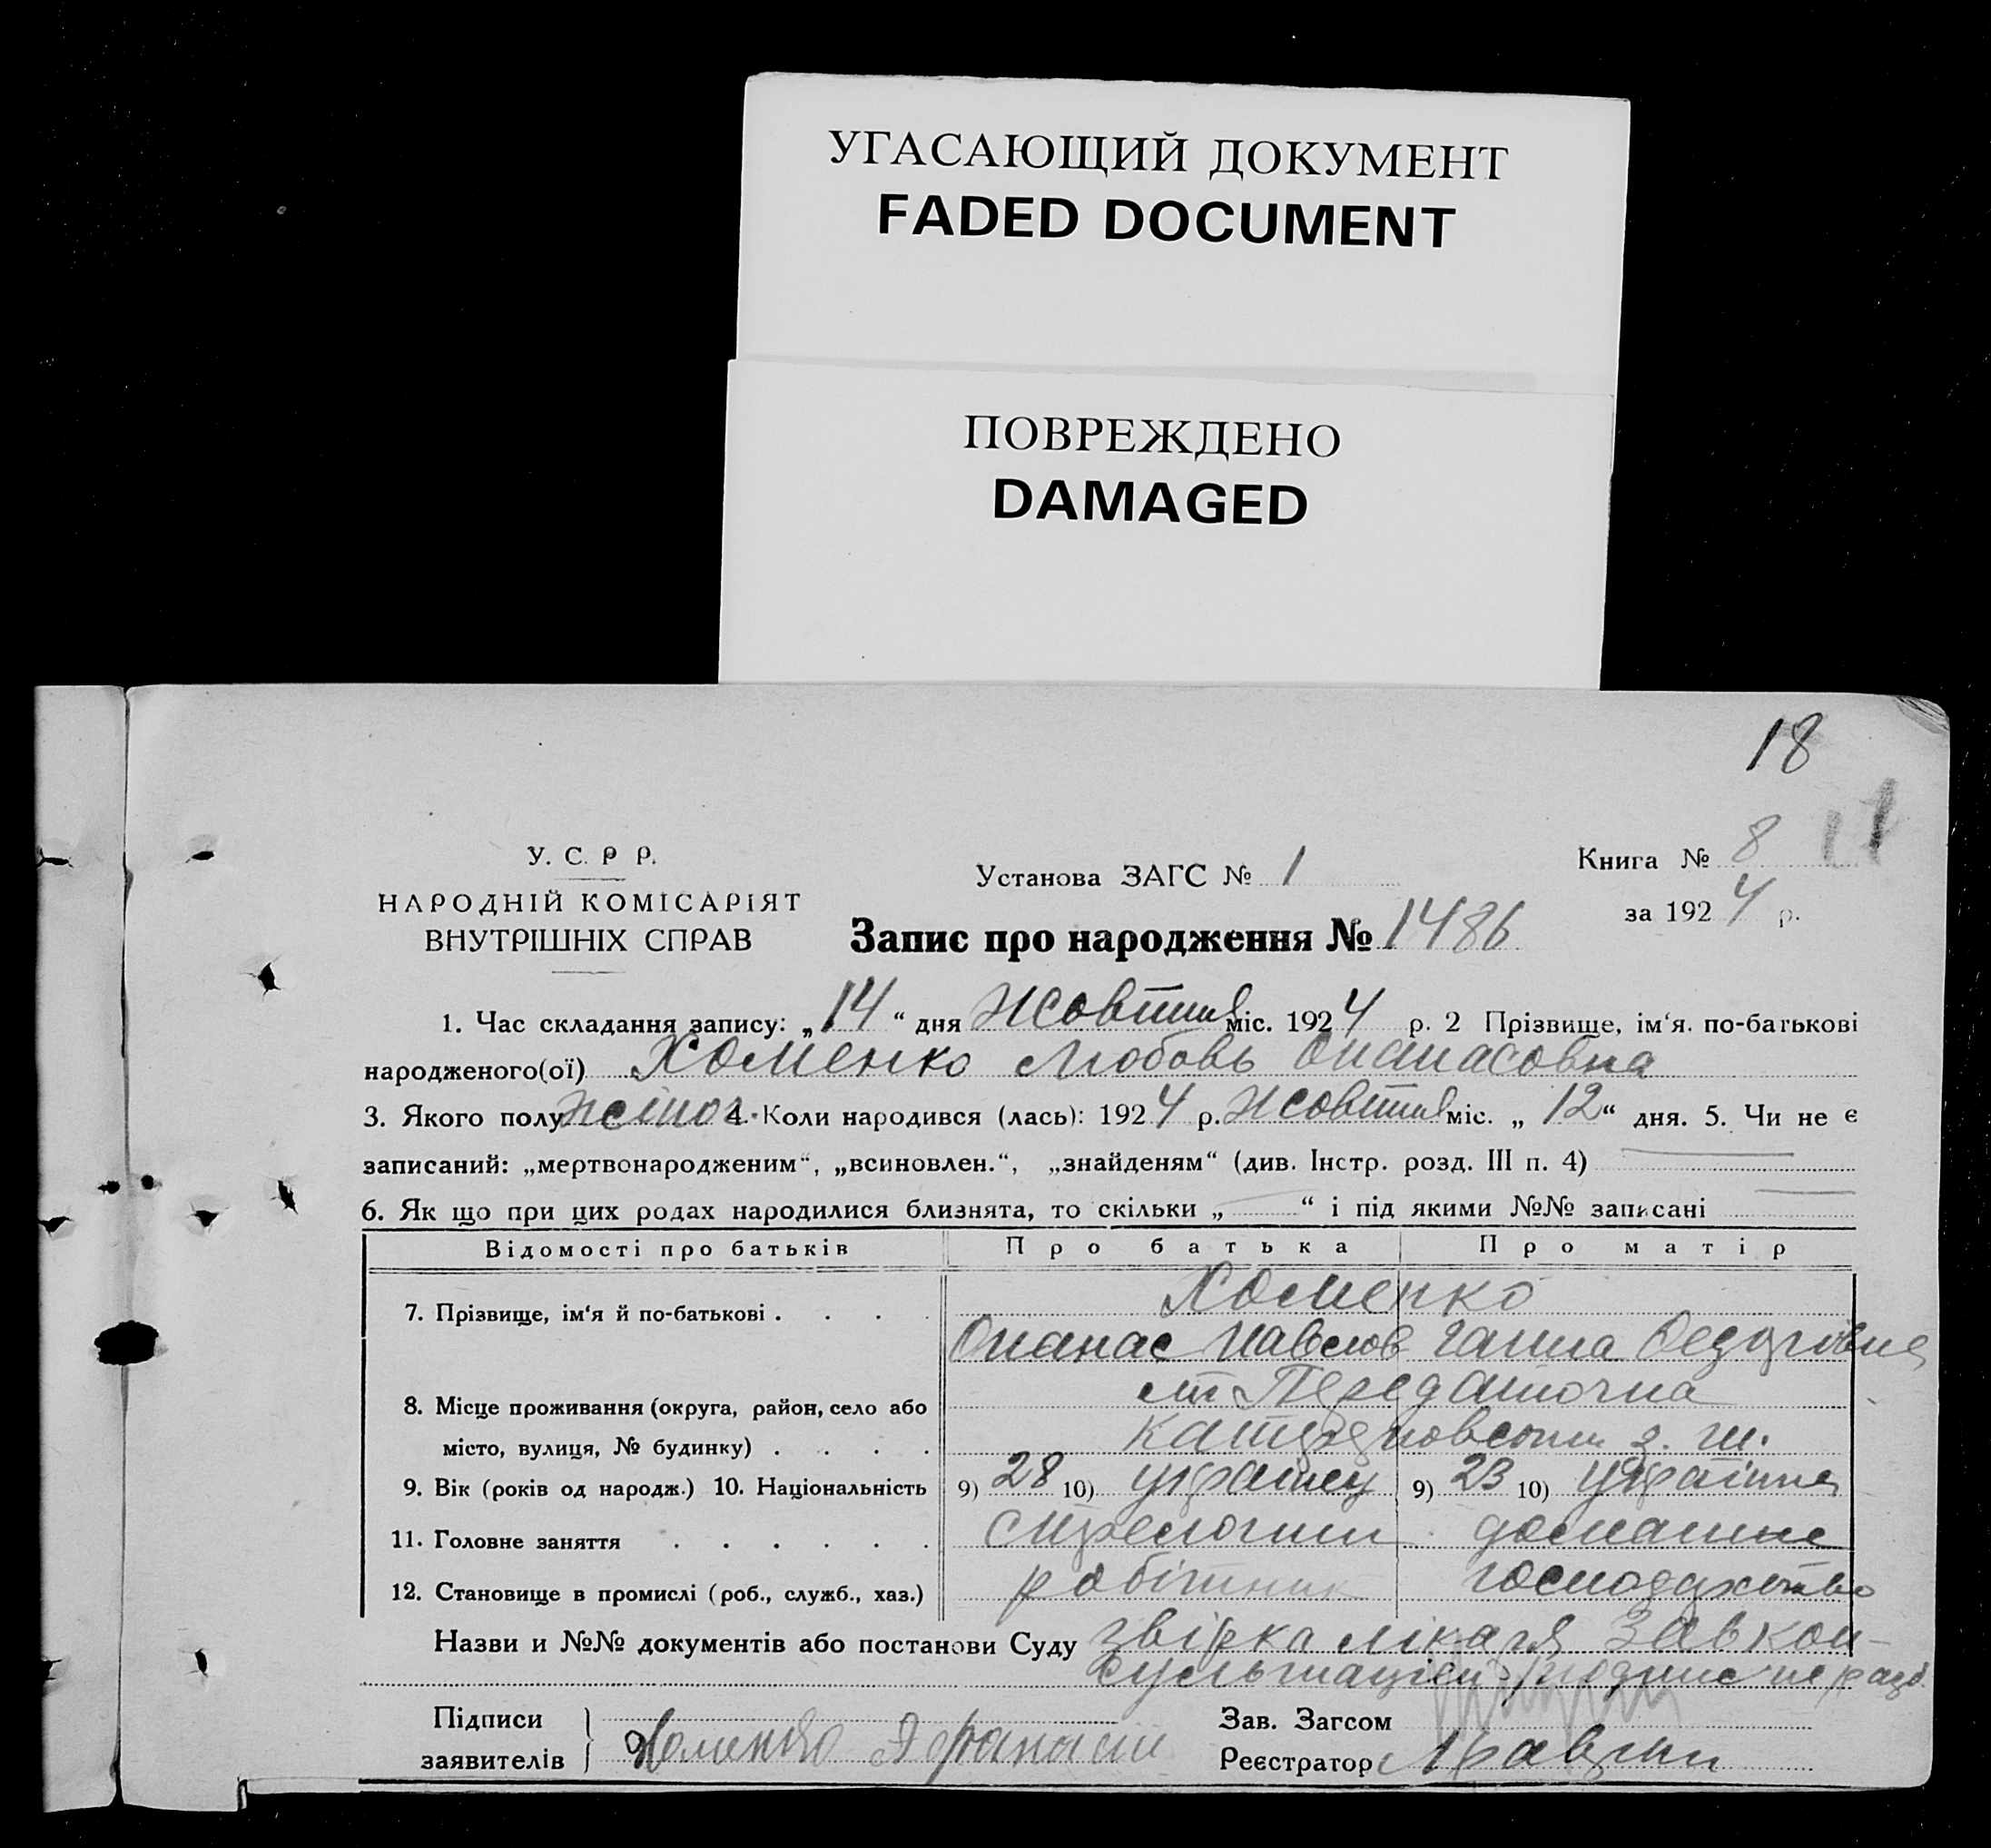 УГАСАЮЩИЙ ДОКУМЕНТ
FADED DOCUMENT
ПОВРЕЖДЕНО
DAMAGED
18
У. С. Р Р.
НАРОДНІЙ КОМІСАРІЯТ
ВНУТРІШНІХ СПРАВ
Установа ЗАГС № 1
Запис про народження № 1486
Книга № 8
за 1924 р.
1. Час складання запису: „14“ дня Жовтня міс. 1924 р. 2 Прізвище, ім‘я. по-батькові
народженого(ої) Хоменко Любовь Опанасовна
3. Якого полу жіноч. 4. Коли народився (лась): 1924 р. Жовтня міс. „12“ дня. 5. Чи не є
записаний: „мертвонародженим“, „всиновлен.“, „знайденям“ (див. Інстр. розд. III п. 4)
6. Як що при цих родах народилися близнята, то скільки „ “ і під якими №№ записані
Відомості про батьків Про батька Про матір
7. Прізвище, ім‘я й по-батькові . . . . Хоменко
Опанас Павлов Ганна Федоровна
8. Місце проживання (округа, район, село або ст Передаточна
місто, вулиця, № будинку) . . . . з. ш.
9. Вік (років од народж.) 10. Національність 9) 28 10) українец 9) 23 10) українка
11. Головне заняття . . . . . . стрелочник домашне
12. Становище в промислі (роб., служб., хаз.) робітник господарство
Назви и №№ документів або постанови Суду звірка лікаря Завкон-
сультацієи підпис не розб.
Підписи
заявителів Хоменко Афанасий
Зав. Загсом
Реєстратор